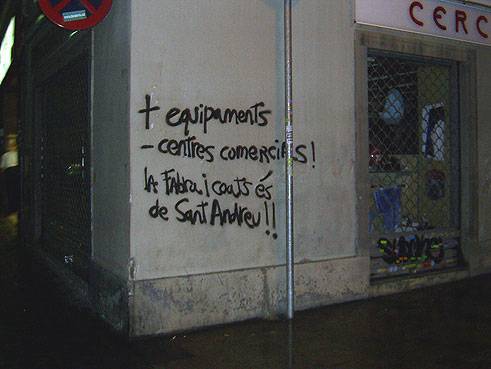 CERC
+ equipaments
- centres comercials!
la Fabra i coats és
de Sant Andreu!!